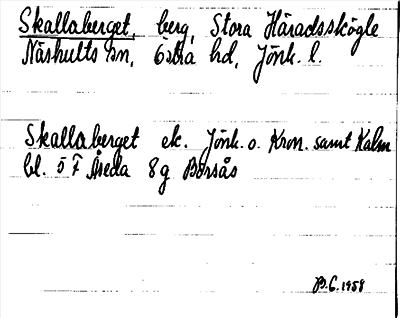 Skallaberget, berg, Stora Häradsskögle
Näshults sn, Östra hd, Jönk. l.
Skallaberget ek. Jönk. o. Kron. samt Kalm
bl. 5 F Åseda 8 g Borsås
B.C. 1958